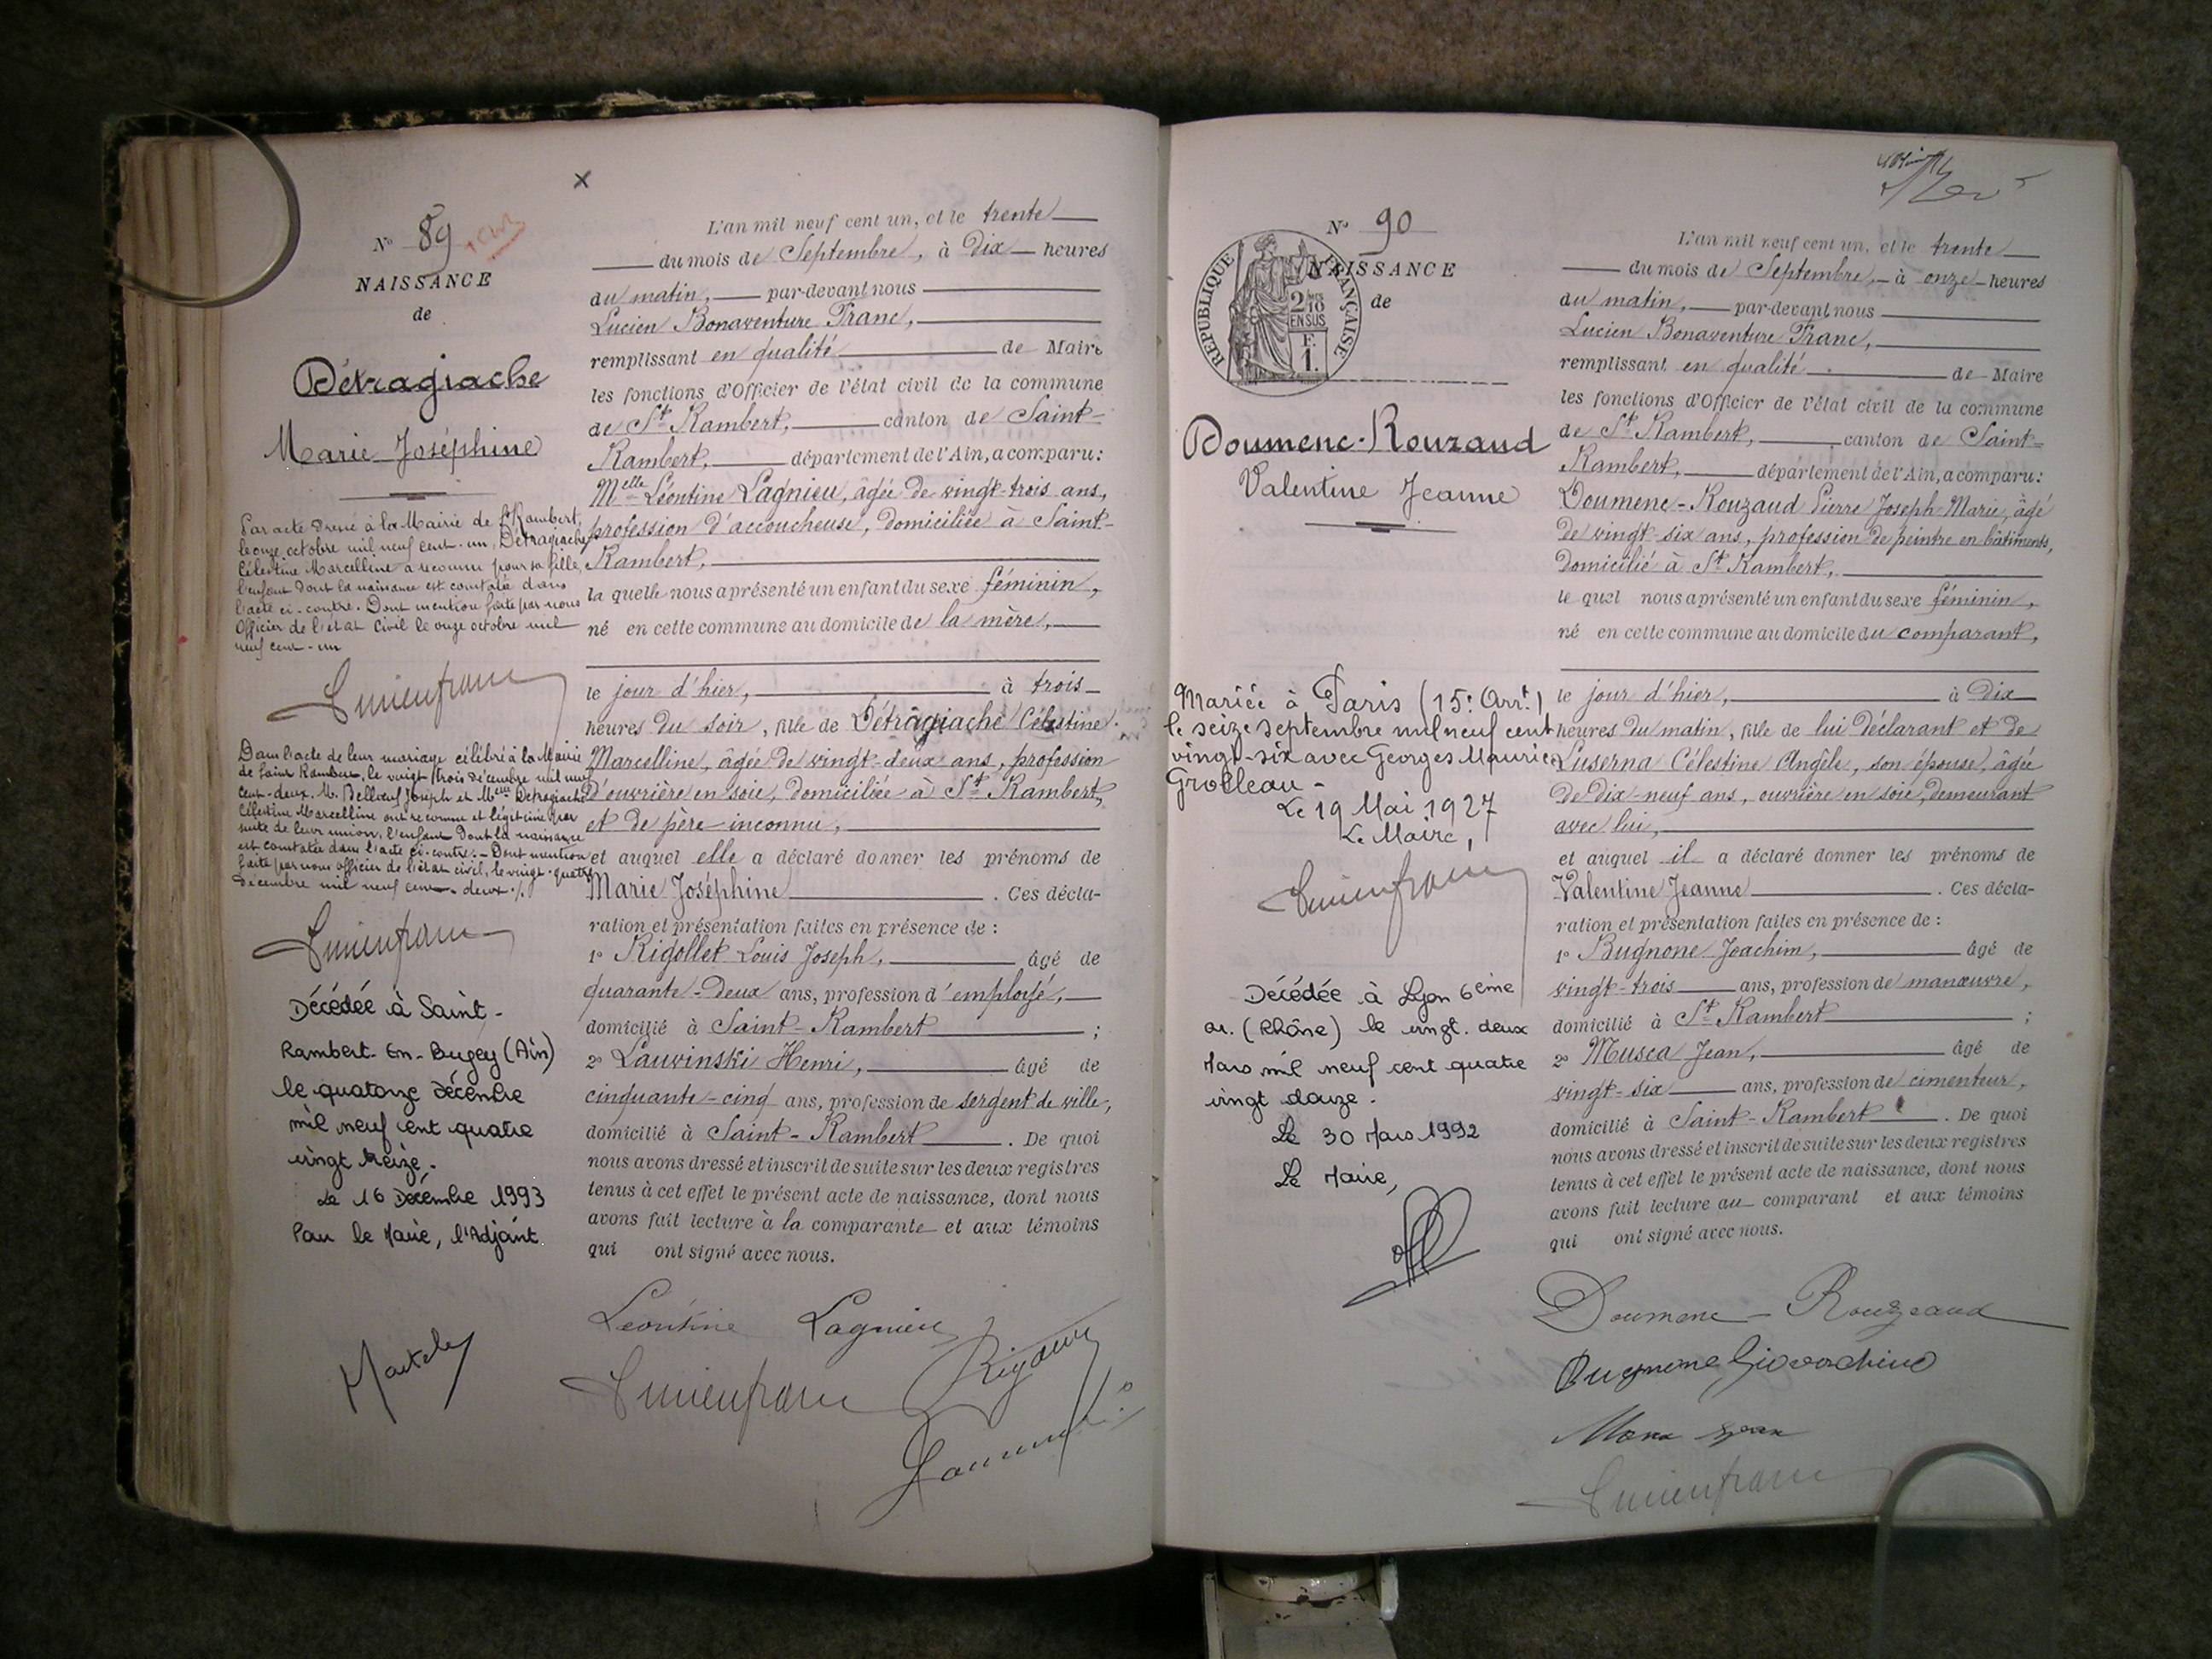 N° 89
NAISSANCE
de
Détragiache
Marie Joséphine
Par acte dressé à la Mairie de St Rambert,
le onze octobre mil neuf cent-un, Détragiache
Célestine Marcelline a reconnu pour sa fille,
l'enfant dont la naissance est constatée dans
l'acte ci-contre. Dont mention faite par nous
Officier de l'état civil le onze octobre mil
neuf cent-un
Lucien franc
Dans l'acte de leur mariage célébré à la Mairie
de Saint Rambert, le vingt trois décembre mil neuf
cent-deux, M. Bellœuf Joseph et Melle Détragiache
Célestine Marcelline ont reconnu et légitimé par
suite de leur union, l'enfant dont la naissance
est constatée dans l'acte ci-contre. - Dont mention
faite par nous officier de l'état civil, le vingt-quatre
décembre mil neuf cent-deux ./.
Lucien franc
Décédée à Saint-
Rambert-En-Bugey (Ain)
le quatorze décembre
mil neuf cent quatre
vingt treize.
Le 16 Décembre 1993
Pour le Maire, l'Adjoint.
X
L'an mil neuf cent un, et le trente
du mois de Septembre, à Dix heures
du matin, par-devant nous
Lucien Bonaventure Franc,
remplissant en qualité de Maire
les fonctions d'Officier de l'état civil de la commune
de St Rambert, canton de Saint-
Rambert, département de l'Ain, a comparu:
Melle Léontine Lagnieu, âgée de vingt-trois ans,
profession d'accoucheuse, domiciliée à Saint-
Rambert,
la quelle nous a présenté un enfant du sexe féminin,
né en cette commune au domicile de la mère,
le jour d'hier, à trois
heures du soir, fille de Détragiache Célestine
Marcelline, âgée de vingt-deux ans, profession
d'ouvrière en soie, domiciliée à St Rambert,
et de père inconnu,
et auquel elle a déclaré donner les prénoms de
Marie Joséphine . Ces décla-
ration et présentation faites en présence de :
1° Rigollet Louis Joseph, âgé de
quarante-deux ans, profession d'employé,
domicilié à Saint-Rambert ;
2° Lauvinski Henri, âgé de
cinquante-cinq ans, profession de sergent de ville,
domicilié à Saint-Rambert . De quoi
nous avons dressé et inscrit de suite sur les deux registres
tenus à cet effet le présent acte de naissance, dont nous
avons fait lecture à la comparante et aux témoins
qui ont signé avec nous.
Léontine Lagnieu
Lucien franc
N° 90
NAISSANCE
de
RÉPUBLIQUE FRANÇAISE
2/10
EN SUS
F.
1.
Doumenc-Rouzaud
Valentine Jeanne
Mariée à Paris (15e Arrt)
le seize septembre mil neuf cent
vingt-six avec Georges Maurice
Grolleau -
Le 19 Mai 1927
Le Maire,
Lucien franc
Décédée à Lyon 6ème
ar. (Rhône) le vingt-deux
Mars mil neuf cent quatre
vingt douze.
Le 30 Mars 1992
Le Maire,
L'an mil neuf cent un, et le trente
du mois de Septembre, à onze heures
du matin, par-devant nous
Lucien Bonaventure Franc,
remplissant en qualité de Maire
les fonctions d'Officier de l'état civil de la commune
de St Rambert, canton de Saint-
Rambert, département de l'Ain, a comparu:
Doumenc-Rouzaud Pierre Joseph-Marie, âgé
de vingt-six ans, profession de peintre en bâtiments,
domicilié à St Rambert,
le quel nous a présenté un enfant du sexe féminin,
né en cette commune au domicile du comparant,
le jour d'hier, à Dix
heures du matin, fille de lui déclarant et de
Luserna Célestine Angèle, son épouse, âgée
de dix-neuf ans, ouvrière en soie, demeurant
avec lui,
et auquel il a déclaré donner les prénoms de
Valentine Jeanne . Ces décla-
ration et présentation faites en présence de :
1° Bugnone Joachim, âgé de
vingt-trois ans, profession de manœuvre,
domicilié à St Rambert ;
2° Musca Jean, âgé de
vingt-six ans, profession de cimenteur,
domicilié à Saint-Rambert . De quoi
nous avons dressé et inscrit de suite sur les deux registres
tenus à cet effet le présent acte de naissance, dont nous
avons fait lecture au comparant et aux témoins
qui ont signé avec nous.
Doumenc-Rouzeaud
Bugnone Giovachino
Lucien franc